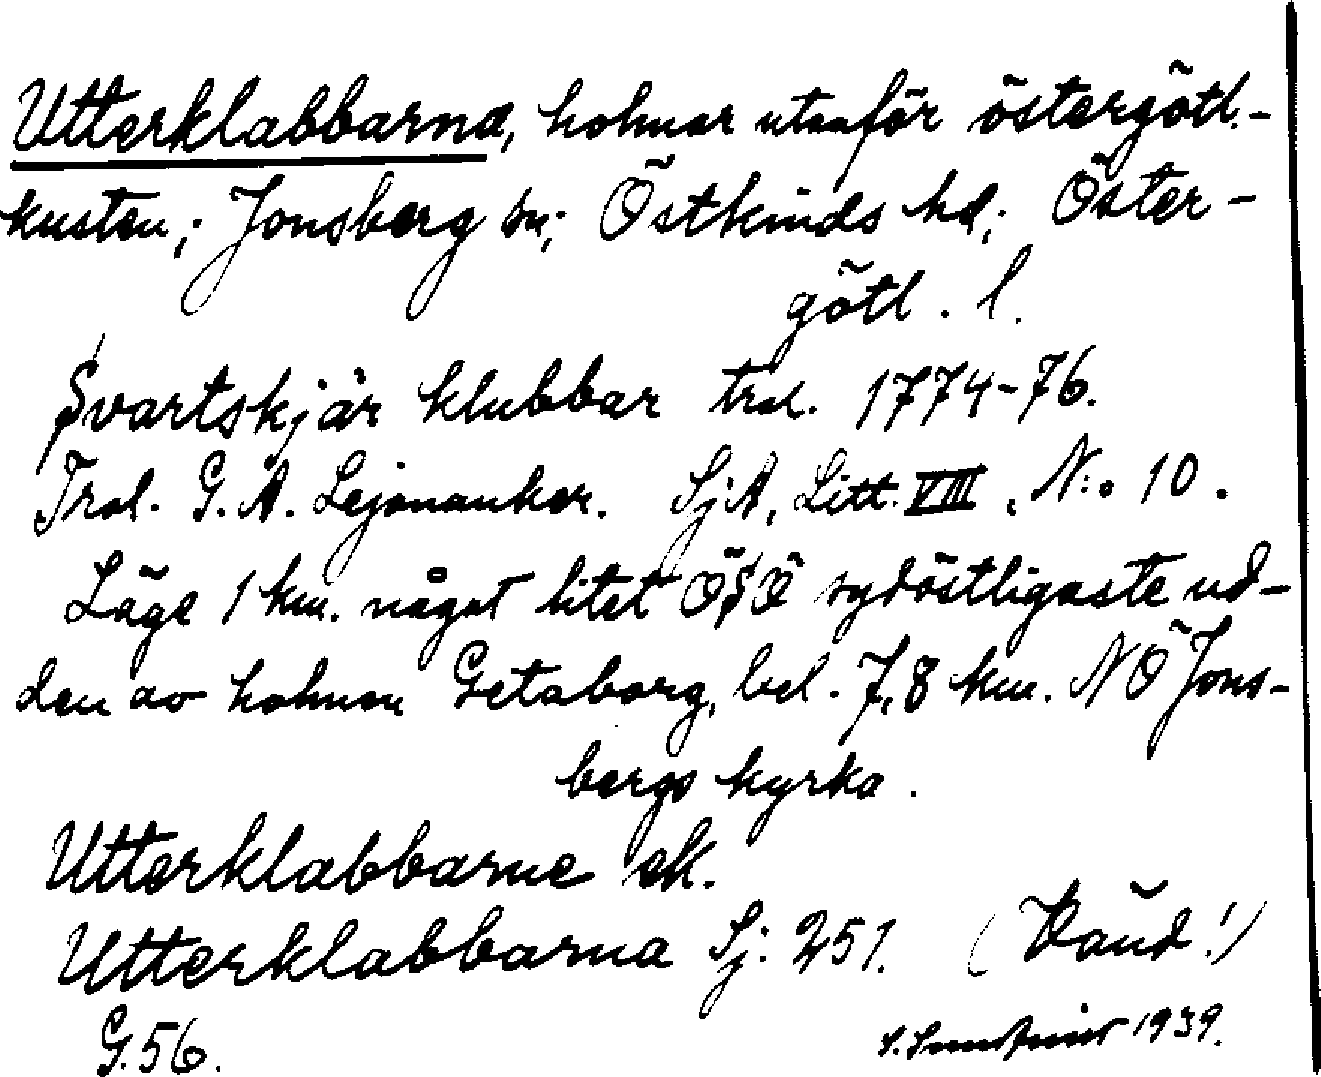 Utterklabbarna, holmar utanför östergötl.-
kusten; Jonsberg sn; Östkinds hd; Öster-
götl. l.
Svartskjär klubbar trol. 1774-76.
Trol. G. A. Lejonanker. SjA, Litt. VIII, N:o 10.
Läge 1 km. något litet ÖSÖ sydöstligaste ud-
den av holmen Getaborg, bel. 7,8 km. NÖ Jons-
bergs kyrka.
Utterklabbarne ek.
Utterklabbarna Sj: 251. (Vänd!)
G. 56.
1939.